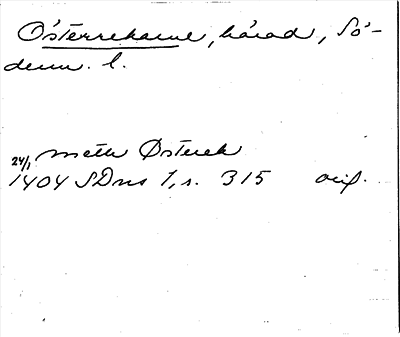 Österrekarne, härad, Sö-
derm. l.
mette Østerek
24/1
1404 SDns 1, s. 315 orig.